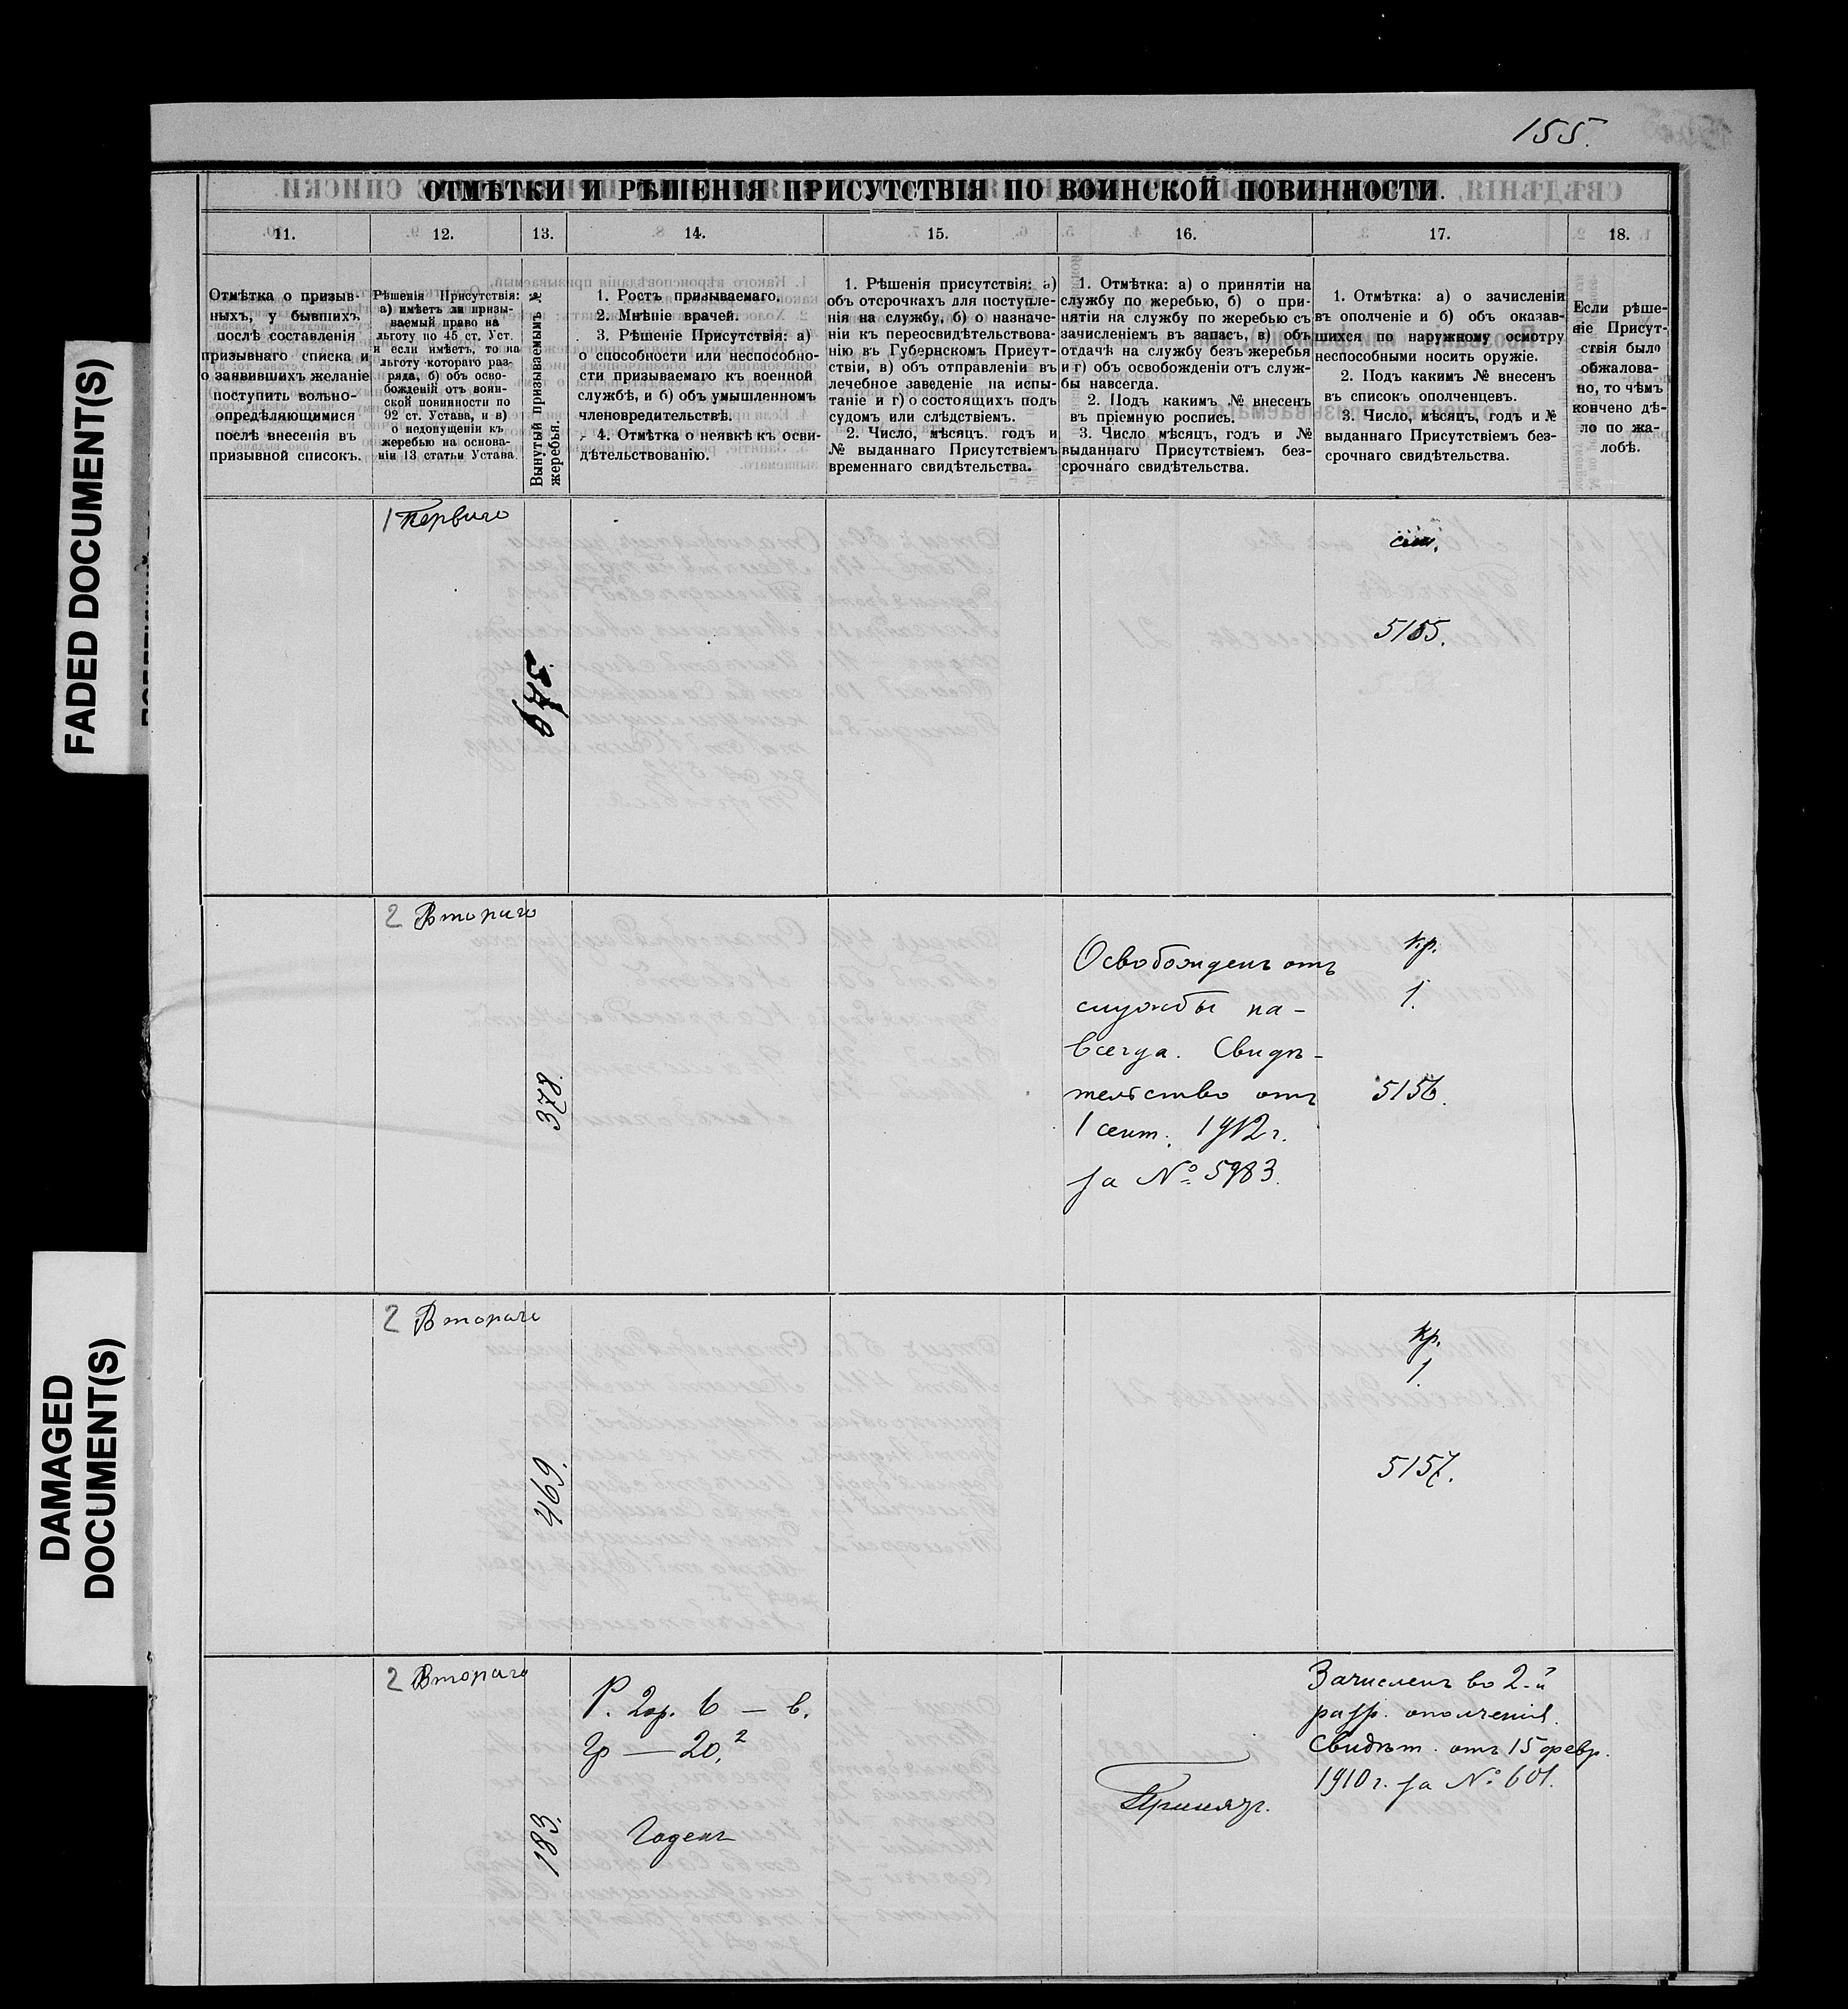 155.
ОТМѢТКИ И РѢШЕНІЯ ПРИСУТСТВІЯ ПО ВОИНСКОЙ ПОВИННОСТИ.
11.
12.
13.
14.
15.
16.
17.
18.
Отмѣтка о призыв-
ныхъ, у бывшихъ
послѣ составленія
призывнаго списка и
о заявившихъ желаніе
поступить вольно-
опредѣляющимися
послѣ внесенія въ
призывной списокъ.
Рѣшенія Присутствія:
а) имѣетъ ли призы-
ваемый право на
льготу по 45 ст. Уст.
и если имѣетъ, то на
льготу котораго раз-
ряда, б) объ осво-
божденій отъ воин-
ской повинности по
92 ст. Устава, и в)
о недопущеніи къ
жеребью на основа-
ніи 13 статьи Устава.
Вынутый призываемымъ №
жеребья.
1. Ростъ призываемаго.
2. Мнѣніе врачей.
3. Рѣшеніе Присутствія: а)
о способности или неспособно-
сти призываемаго къ военной
службѣ, и б) объ умышленномъ
членовредительствѣ.
4. Отмѣтка о неявкѣ къ осви-
дѣтельствованію.
1. Рѣшенія присутствія: а)
объ отсрочкахъ для поступле-
нія на службу, б) о назначе-
ніи къ переосвидѣтельствова-
нію въ Губернскомъ Присут-
ствіи, в) объ отправленіи въ
лечебное заведеніе на испы-
таніе и г) о состоящихъ подъ
судомъ или слѣдствіемъ.
2. Число, мѣсяцъ, годъ и
№ выданнаго Присутствіемъ
временнаго свидѣтельства.
1. Отмѣтка: а) о принятіи на
службу по жеребью, б) о при-
нятіи на службу по жеребью съ
зачисленіемъ въ запасъ, в) объ
отдачѣ на службу безъ жеребья
и г) объ освобожденіи отъ служ-
бы навсегда.
2. Подъ какимъ № внесенъ
въ пріемную роспись.
3. Число мѣсяцъ, годъ и №
выданнаго Присутствіемъ без-
срочнаго свидѣтельства.
1. Отмѣтка: а) о зачисленіи
въ ополченіе и б) объ оказав-
шихся по наружному осмотру
неспособными носить оружіе.
2. Подъ какимъ № внесенъ
въ списокъ ополченцевъ.
3. Число, мѣсяцъ, годъ и №
выданнаго Присутствіемъ без-
срочнаго свидѣтельства.
Если рѣше-
ніе Присут-
ствія было
обжалова-
но, то чѣмъ
кончено дѣ-
ло по жа-
лобѣ.
1 Перваго
379
5155.
2 Втораго
378.
Освобожденъ отъ
службы на-
всегда. Свидѣ-
тельство отъ
1 сент. 1912 г.
за № 5983.
кр.
1.
5156.
2 Втораго
469.
кр.
1.
5157.
2 Втораго
183.
Р. 2ар. 6 — в.
Гр — 20,2
Годенъ
Принятъ.
Зачисленъ во 2-й
разр. ополченія.
Свидѣт. отъ 15 февр.
1910 г. за № 601.
FADED DOCUMENT(S)
DAMAGED
DOCUMENT(S)